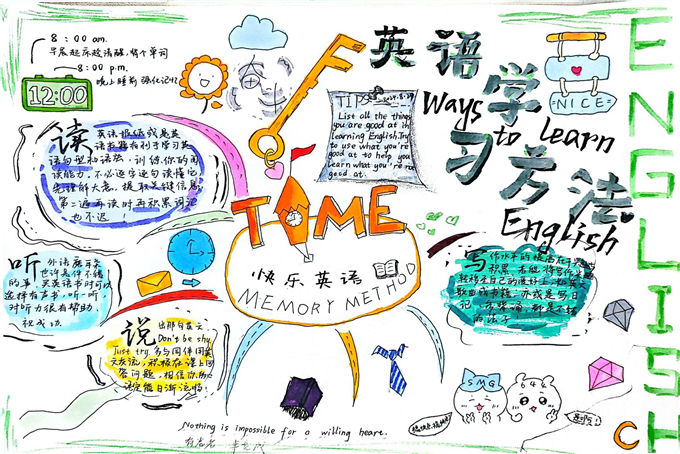 8:00 am.
早晨起床较清醒,背个单词
8:00 p.m.
晚上睡前 强化记忆
12:00
奋斗
英语学
习方法
Ways
to Learn
English
NICE
ENGLISH
TIPS
List all the things
you are good at in
learning English. Try
to use what you're
good at to help you
learn what you're not
good at.
读
英语报纸或是英
语书籍有利于学习英
语句型和语法,训练你的阅
读能力,不必逐字逐句读懂它
先理解大意,提取关键信息,
第二遍再读时再积累词汇
也不迟!
TIME
快乐英语
MEMORY METHOD
听
外语磨耳朵
也许是件不错
的事,买英语书时可以
选择有声书,听一听,
对听力很有帮助,
祝成功.
说
出那句英文,
Don't be shy
Just try. 多与同伴用英
文交流,积极在课上回
答问题,相信你的口
语定能日渐流畅!
写
作水平的提高在于
积累,若能将写作
转移至自己的
歌曲或书籍,亦或是写日
记、
的法子
SMG
644
Nothing is impossible for a willing heart.
C